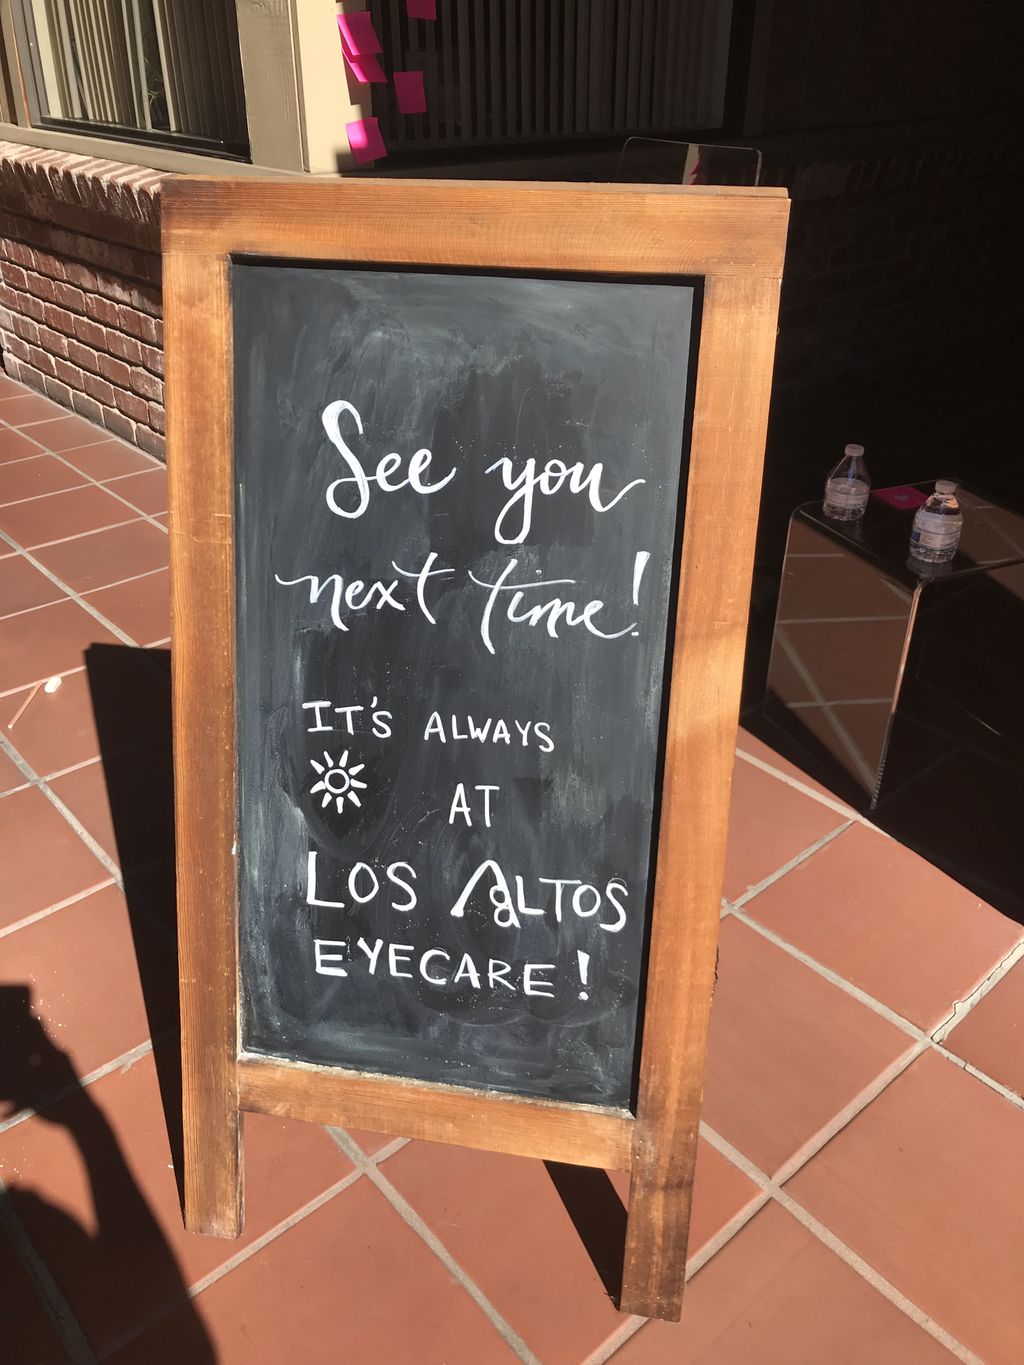 See you
next time!
IT'S ALWAYS
AT
LOS ALTOS
EYECARE!